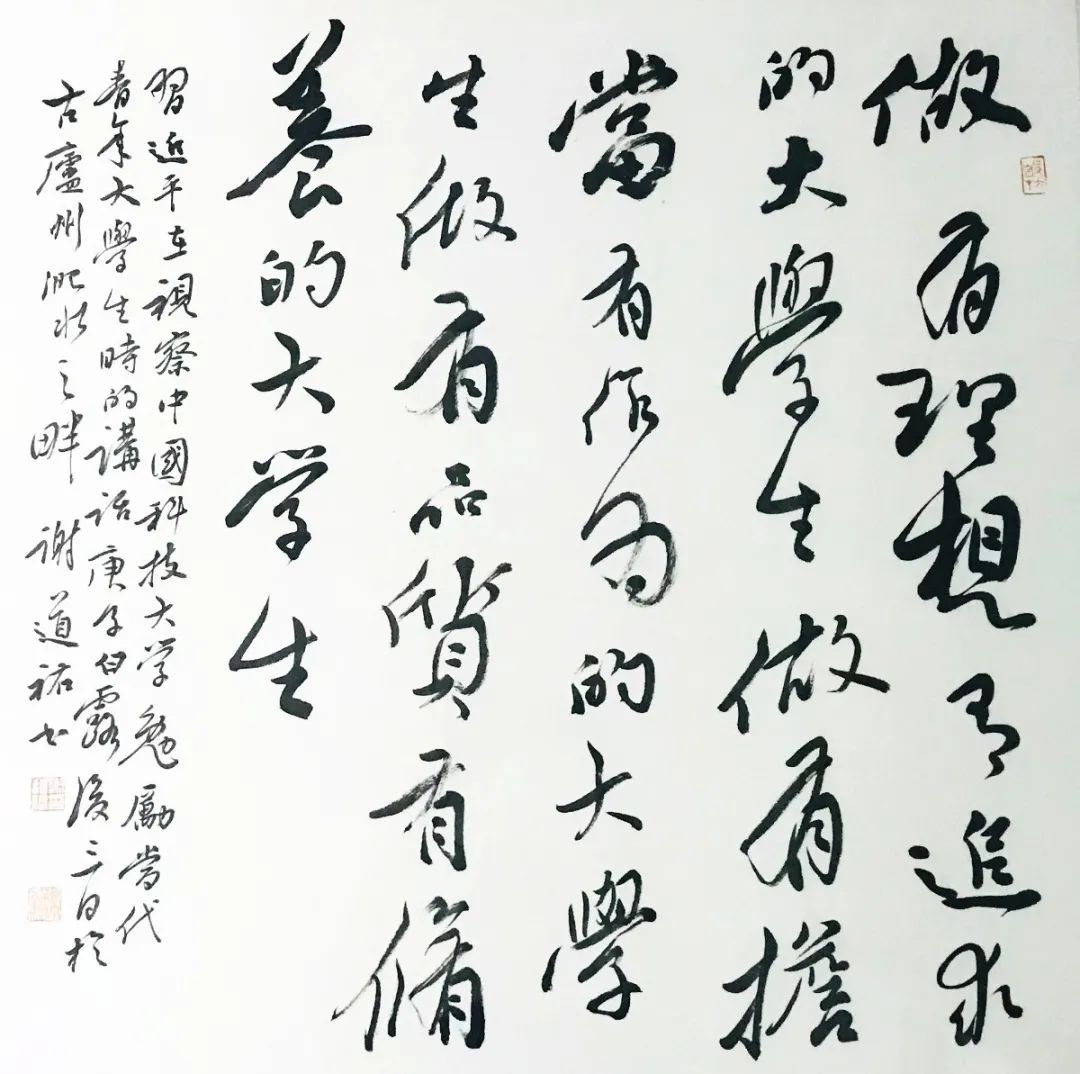 做有理想有追求
的大學生做有擔
當有作为的大學
生做有品質有脩
養的大学生
習近平在視察中國科技大学勉勵当代
青年大學生時的講话庚子白露後三日於
古廬州淝水之畔 谢道祐书